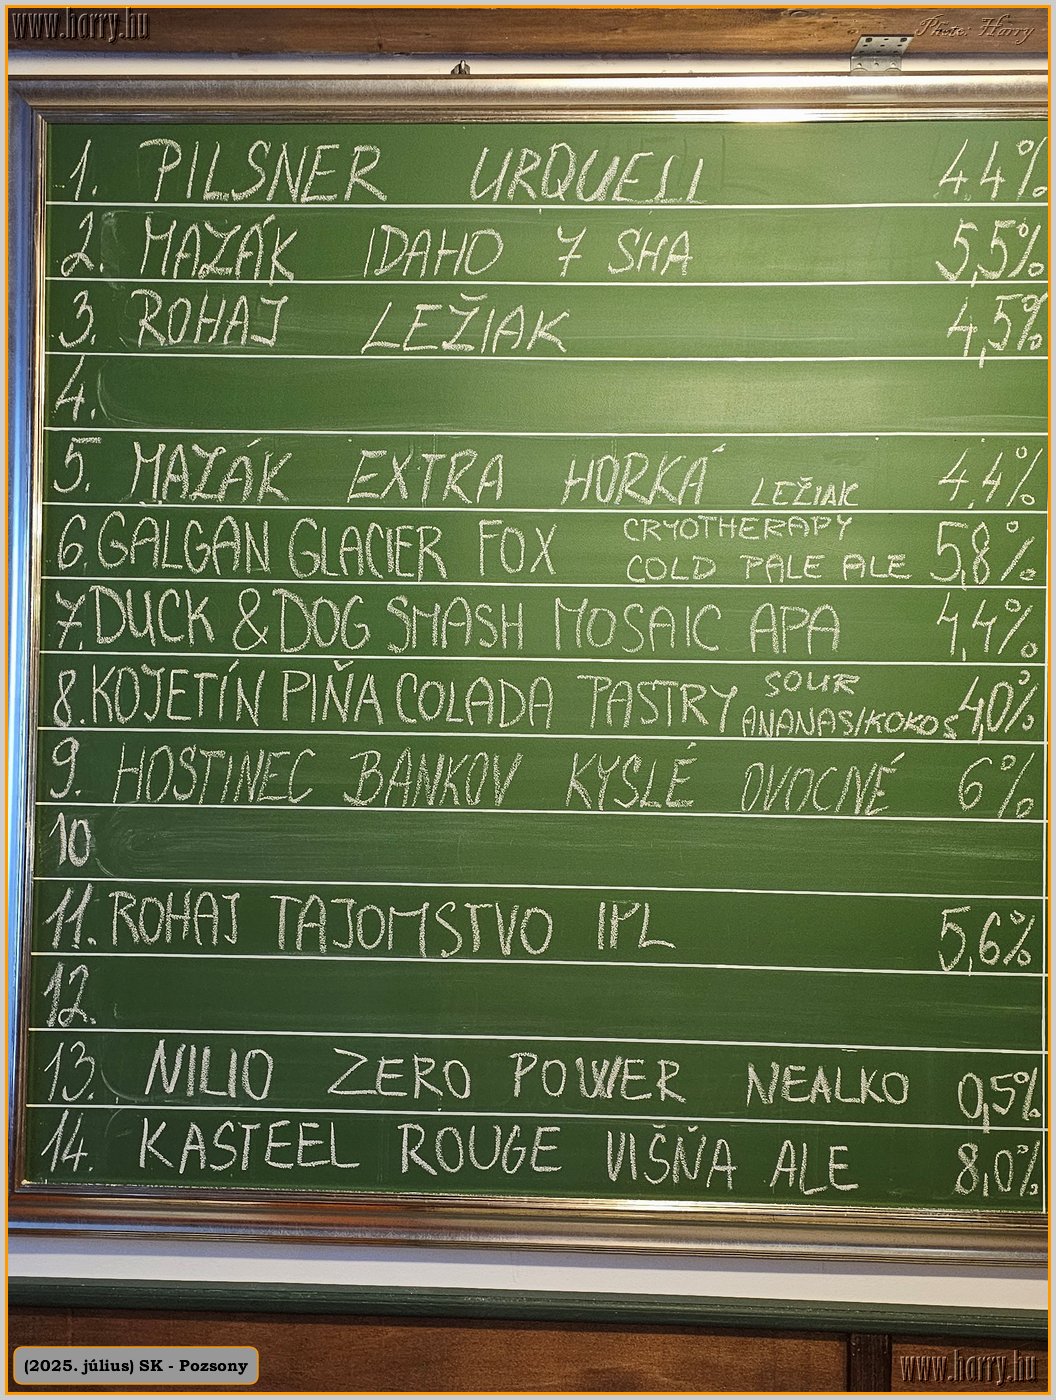 www.horry.hu
Photo: Horry
1. PILSNER URQUELL 4,4%
2. MAZÁK IDAHO 7 SHA 5,5%
3. ROHAJ LEŽIAK 4,5%
4.
5. MAZÁK EXTRA HORKÁ LEŽIAK 4,4%
6. GALGAN GLACIER FOX CRYOTHERAPY COLD PALE ALE 5,8%
7. DUCK & DOG SMASH MOSAIC APA 4,4%
8. KOJETÍN PIŇA COLADA PASTRY SOUR ANANAS/KOKOS 4,0%
9. HOSTINEC BANKOV KYSLÉ OVOCNÉ 6%
10
11. ROHAJ TAJOMSTVO IPL 5,6%
12.
13. NILIO ZERO POWER NEALKO 0,5%
14. KASTEEL ROUGE VIŠŇA ALE 8,0%
(2025. július) SK - Pozsony
www.horry.hu